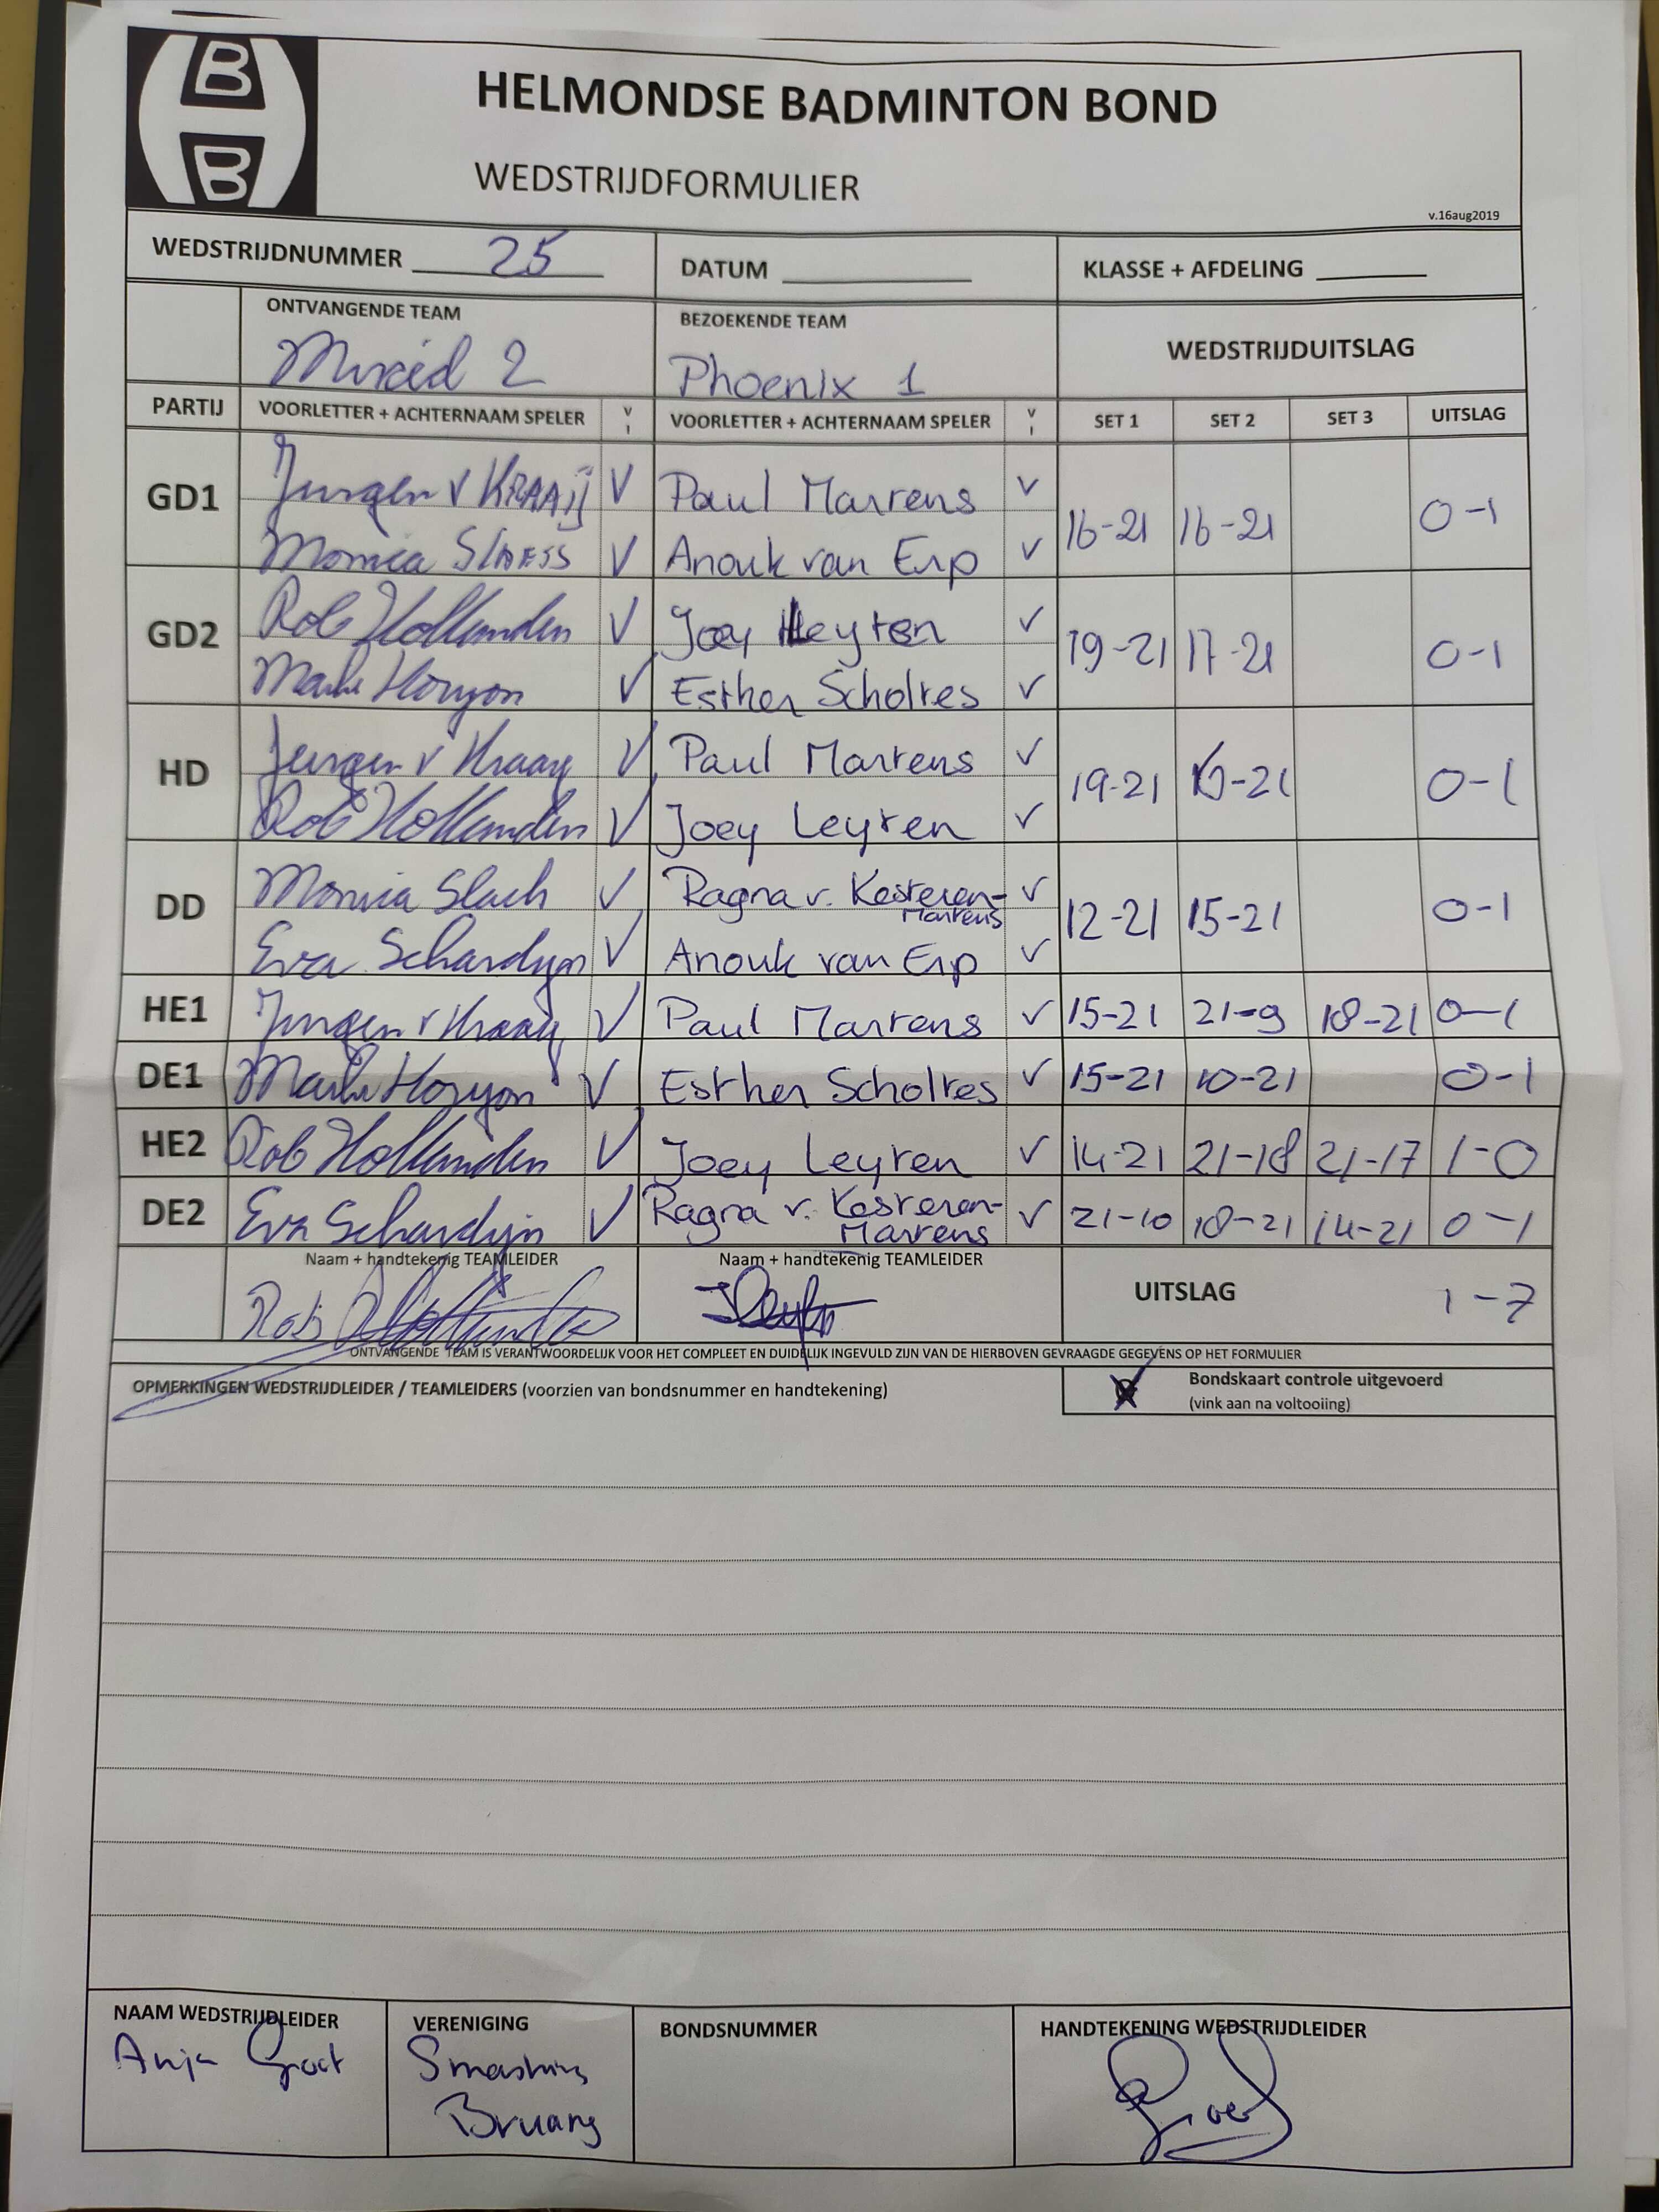 B
B
HELMONDSE BADMINTON BOND
WEDSTRIJDFORMULIER
v.16aug2019
WEDSTRIJDNUMMER 25 DATUM KLASSE + AFDELING
ONTVANGENDE TEAM BEZOEKENDE TEAM WEDSTRIJDUITSLAG
Mixed 2 Phoenix 1
PARTIJ VOORLETTER + ACHTERNAAM SPELER V I VOORLETTER + ACHTERNAAM SPELER V I SET 1 SET 2 SET 3 UITSLAG
GD1 Jurgen v KRAAIJ V Paul Martens V 16-21 16-21 0-1
Monica V Anouk van Erp V
GD2 Rob Hollanden V Joey Leyten V 19-21 17-21 0-1
V Esther Scholtes V
HD Jurgen v Kraaij V Paul Martens V 19-21 -21 0-1
Rob Hollanden V Joey Leyten V
DD Monica V Ragna v. Kesteren-Martens V 12-21 15-21 0-1
Eva Schardijn V Anouk van Erp V
HE1 Jurgen v Kraaij V Paul Martens V 15-21 21-9 18-21 0-1
DE1 V Esther Scholtes V 15-21 10-21 0-1
HE2 Rob Hollanden V Joey Leyten V 14-21 21-18 21-17 1-0
DE2 Eva Schardijn V Ragna v. Kesteren-Martens V 21-10 18-21 14-21 0-1
Naam + handtekenig TEAMLEIDER Naam + handtekenig TEAMLEIDER UITSLAG 1-7
Rob
ONTVANGENDE TEAM IS VERANTWOORDELIJK VOOR HET COMPLEET EN DUIDELIJK INGEVULD ZIJN VAN DE HIERBOVEN GEVRAAGDE GEGEVENS OP HET FORMULIER
OPMERKINGEN WEDSTRIJDLEIDER / TEAMLEIDERS (voorzien van bondsnummer en handtekening) Bondskaart controle uitgevoerd
(vink aan na voltooiing)
NAAM WEDSTRIJDLEIDER VERENIGING BONDSNUMMER HANDTEKENING WEDSTRIJDLEIDER
Anja Groot Smashing
Bruang